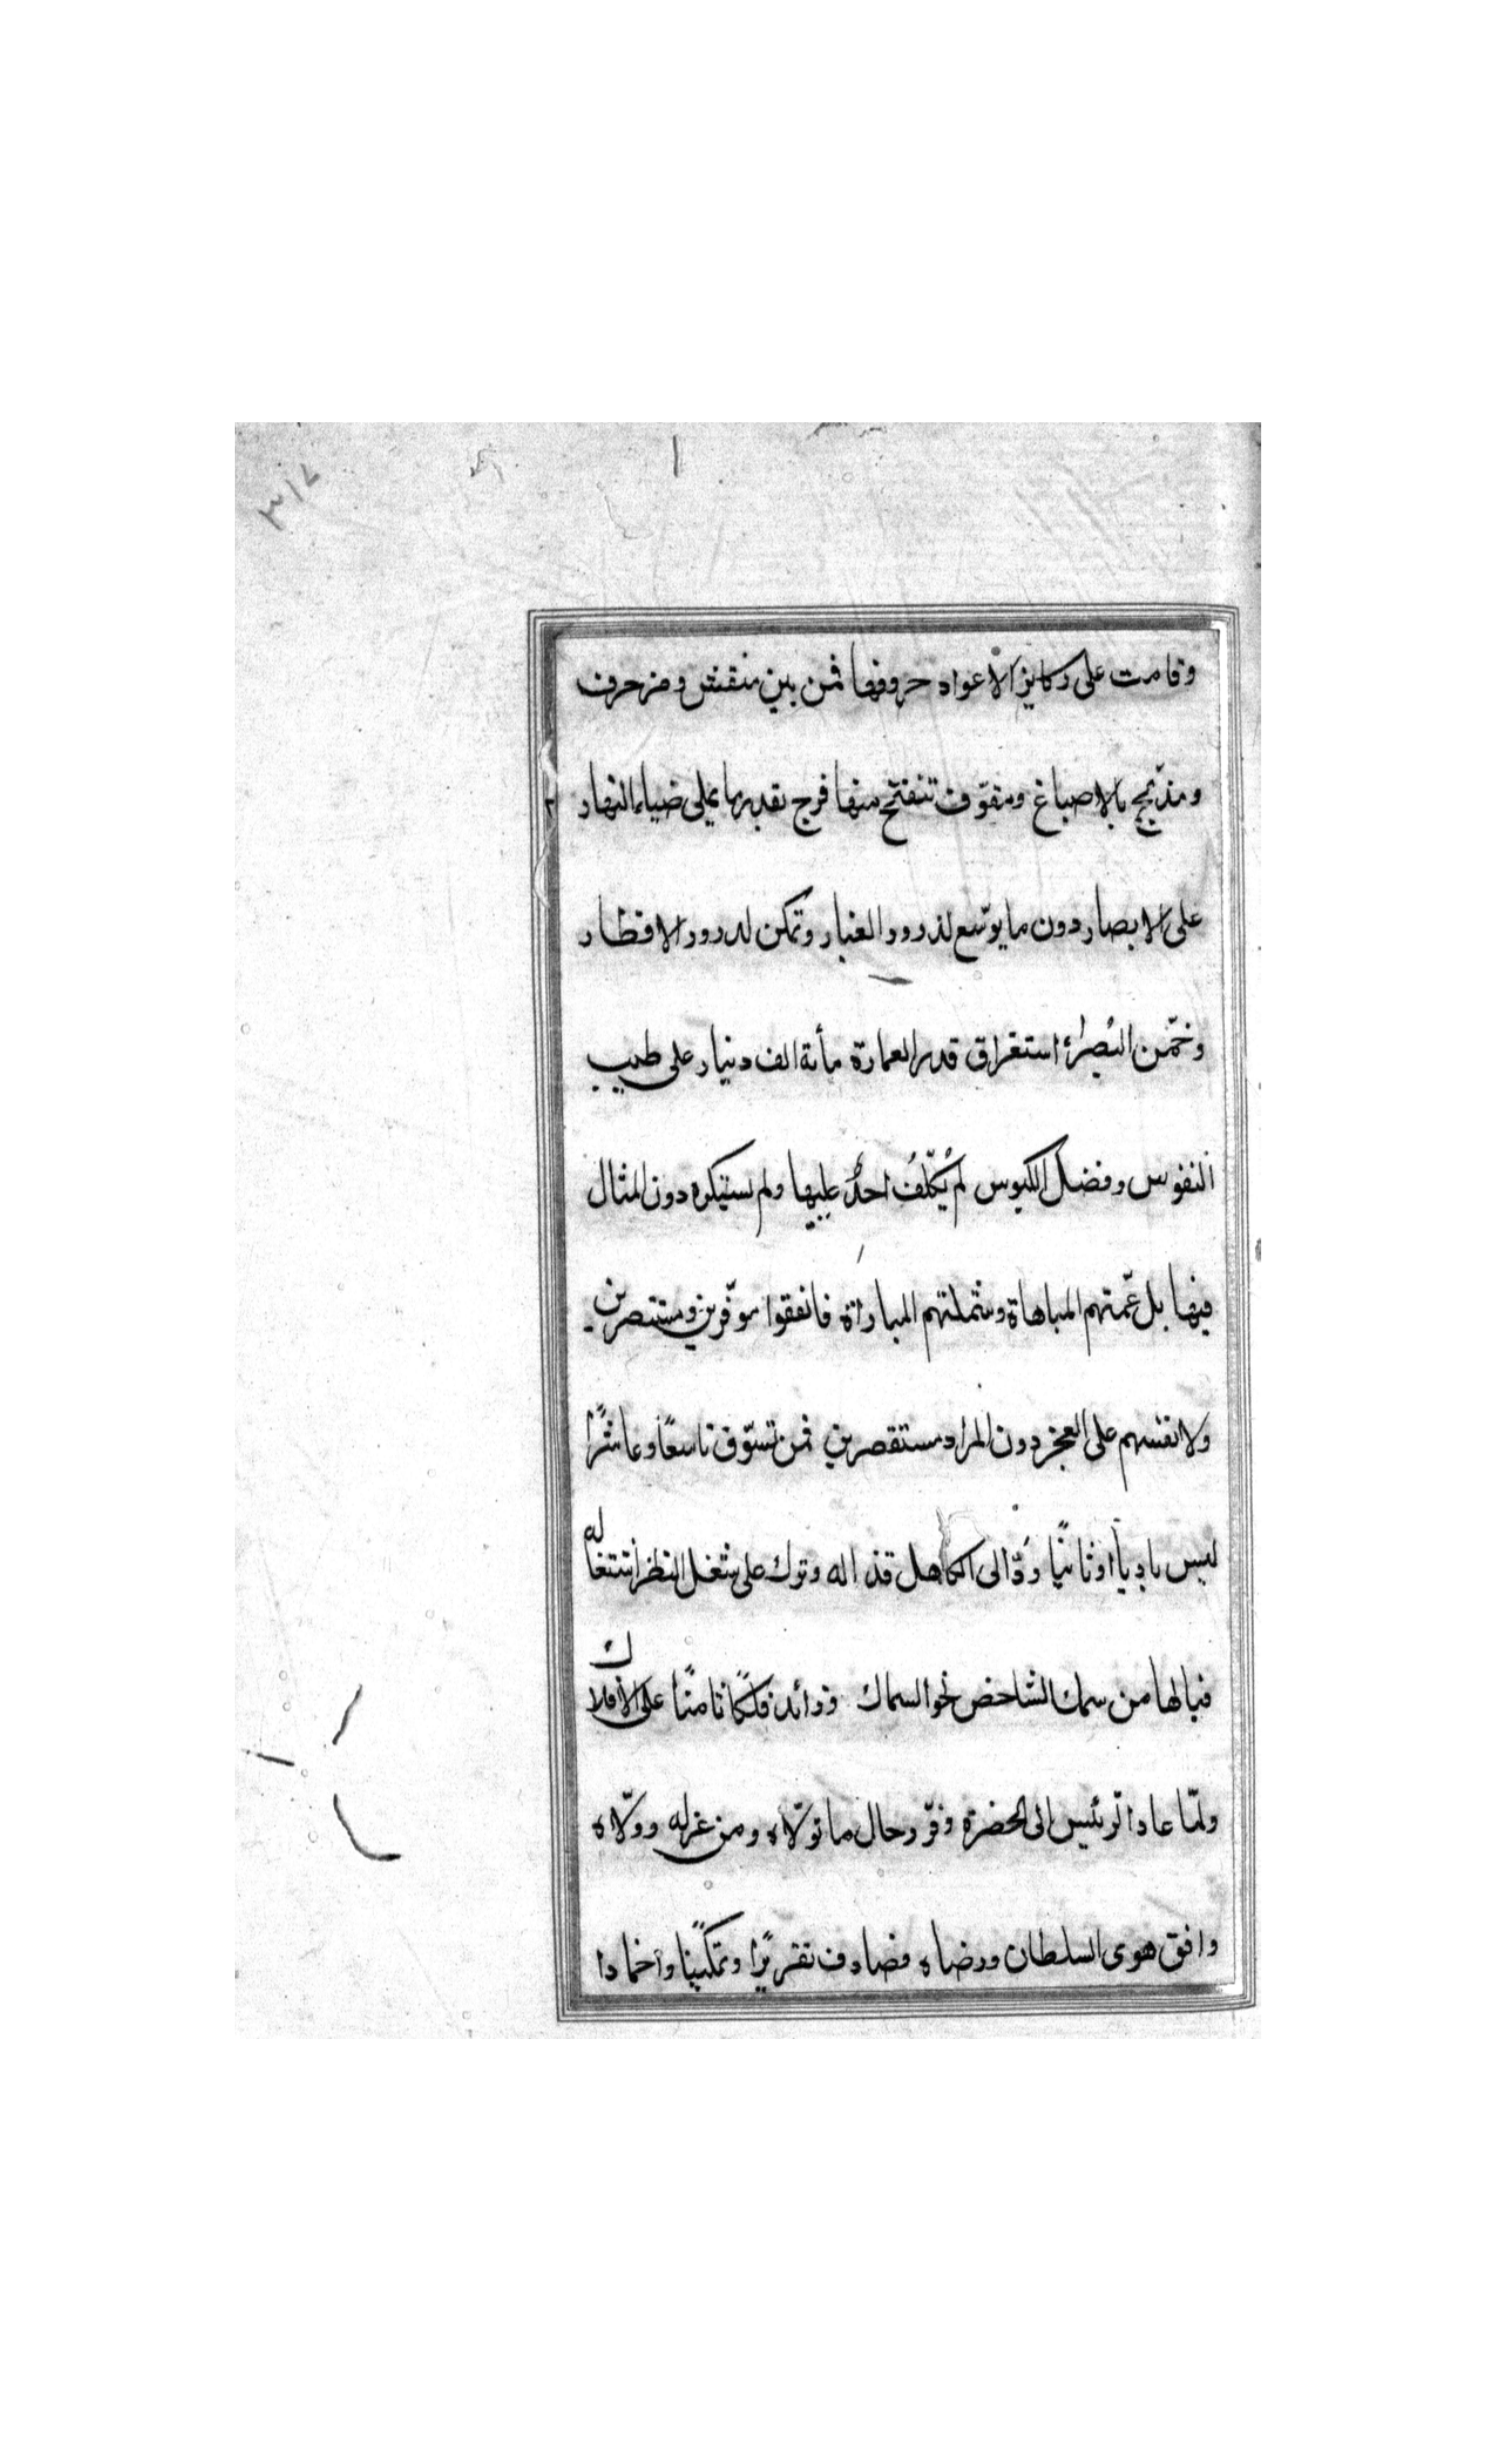 ٣١٧
وقامت على ركايز الاعواد حروفها فمن بين منقش ومزحرف
ومذبج بالاصباغ ومفوّف تنفتح منها فرج بقدر ما يملى ضياء النهار
على الابصار دون ما يوسّع لذرور الغبار وتمكن لدرور الاقطار
وخمّن البُصراُ استغراق قدر العمارة مأىة الف دينار على طيب
النفوس وفضل الكيوس لم يُكلّفُ احدٌ عليها ولم يستكره دون المثال
فيها بل عمّتهم المباهاة وشملتهم المباراة فانفقوا موفّرين ومستنصرين
ولانفسهم على العجز دون المراد مستقصرين فمن تسوّق تاسعًا وعاشرًا
ليس باديًا او ثانيًا ردّ الى الكاهل قذاله وترك على شغل النظر اشتغاله
فيالها من سمك الشاخص نحو السماك وزائد فلكًا ثامنًا على الافلاك
ولمّا عاد الرئيس الى الحضرة وقرّر حال ما تولاّه ومن عزله وولاّه
وافق هوى السلطان ورضاه فصادف تقريرًا وتمكينًا واخمادا